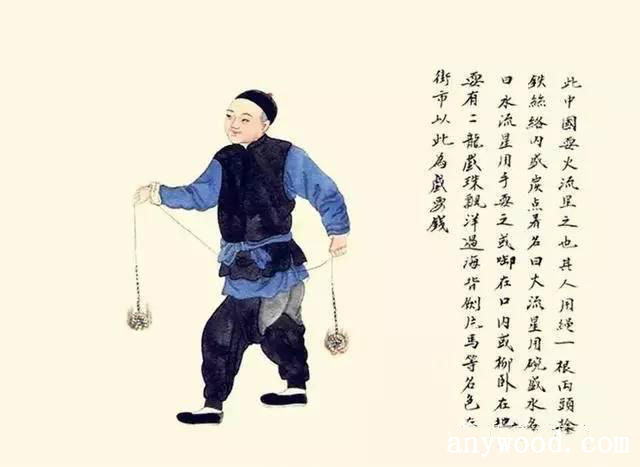 此中國耍火流星之也其人用繩一根兩頭拴
鉄絲絡内盛炭点着名曰火流星用碗盛水名
曰水流星用手耍之或啣在口内或柳臥在地
耍有二龍戲珠觀洋過海背劍片馬等名色在
街市以此為戲要錢
www.anywood.com